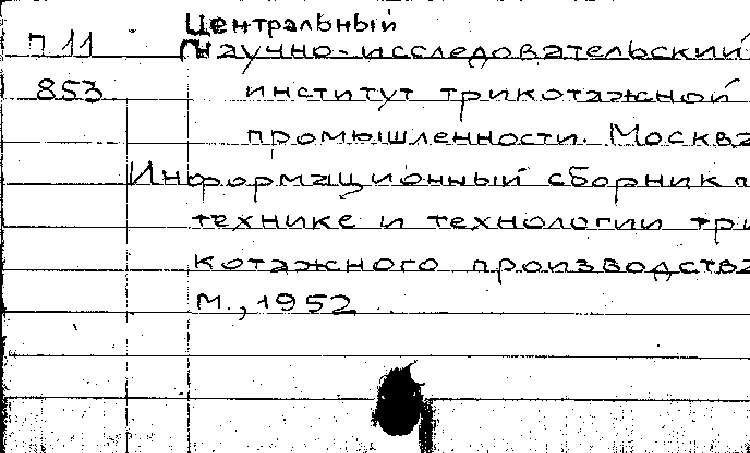 Центральный
П 11 научно-исследовательский
853 институт трикотажной
промышленности. Москва
Информационный сборник п
технике и технологии три
котажного производства
М., 1952